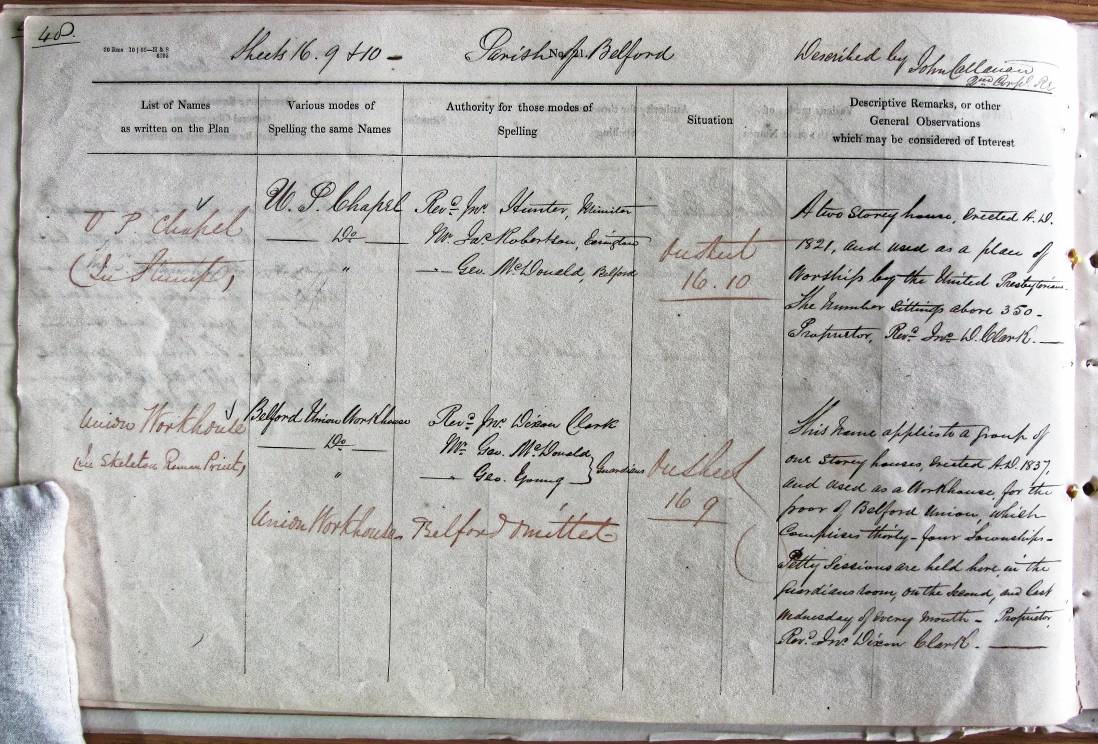 48.
Sheets 16. 9 & 10 - Parish of Belford Described by John Callanan
2nd Corpl. Re
List of Names
as written on the Plan
Various modes of
Spelling the same Names
Authority for those modes of
Spelling
Situation
Descriptive Remarks, or other
General Observations
which may be considered of Interest
U P Chapel
(In Stamps)
U. P. Chapel
Do
"
Revd. Jno. Hunter, Minister
Mr. Jas. Robertson, Easington
— Geo. McDonald, Belford
On sheet
16.10
A two storey house, erected A.D.
1821, and used as a place of
Worship by the United Presbyterians.
The Number Sittings above 350 -
Proprietor, Revd. Jno. D. Clark. —
Union Workhouse
(in Skeleton Roman Print)
Belford Union Workhouse
Do
"
Union Workhouse
Revd. Jno. Dixon Clark
Mr. Geo. McDonald
— Geo. Young } Guardians
Belford omitted
On sheet
16 9
This name applies to a group of
one Storey houses, erected A.D. 1837,
and used as a Workhouse, for the
poor of Belford Union, which
Comprises thirty-four Townships -
Petty Sessions are held here, in the
Guardians room, on the second, and last
Wednesday of every month - Proprietor,
Revd. Jno. Dixon Clark. —